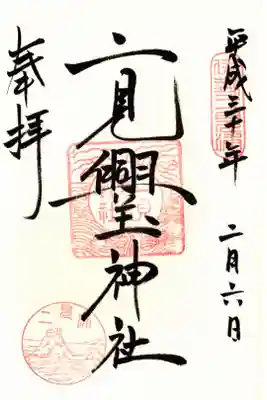 平成三十年 二月六日
二見興玉神社
奉拝